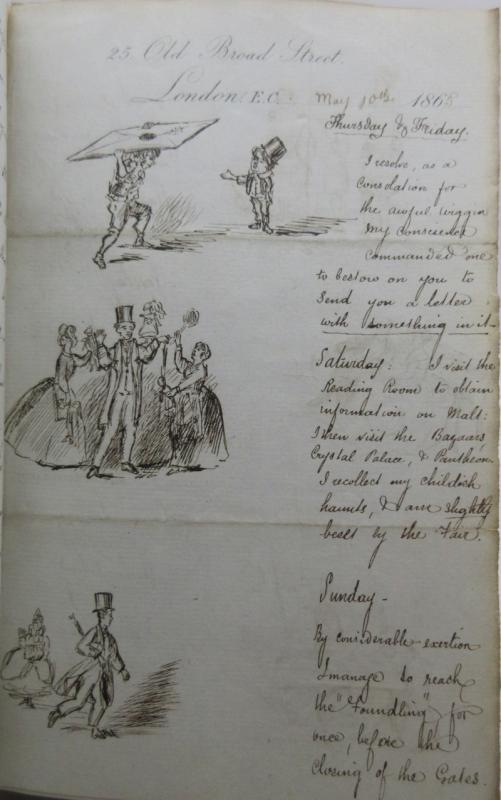 25 Old Broad Street.
London, E.C. May 10th 1865
Thursday & Friday.
I resolve, as a
Consolation for
the awful wiggin
my conscience
commanded me
to bestow on you to
Send you a letter
with something in it.
Saturday: I visit the
Reading Room to obtain
information on Malt:
I then visit the Bazaars,
Crystal Palace, & Pantheon
I recollect my childish
haunts, & am slightly
beset by the Fair.
Sunday -
By considerable exertion
I manage to reach
the "Foundling" for
once, before the
Closing of the Gates.